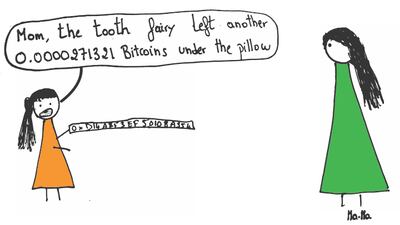 Mom, the tooth fairy left another
0.0000271321 Bitcoins under the pillow
Ma.Ma